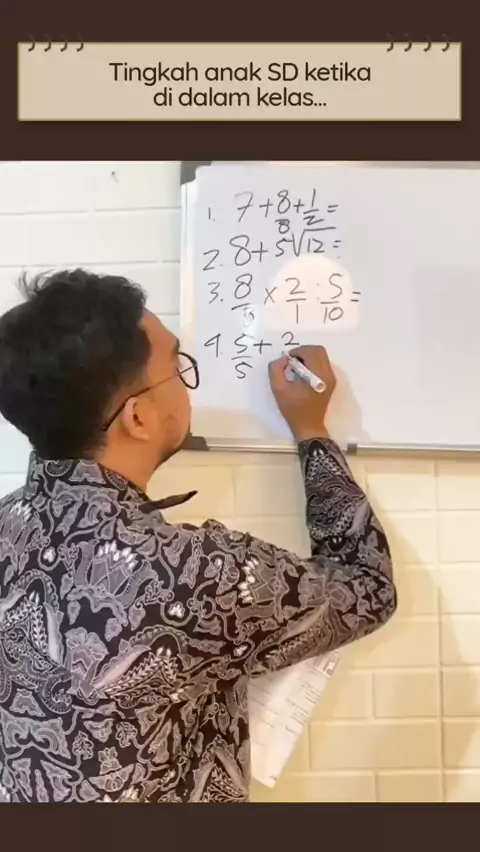 Tingkah anak SD ketika
di dalam kelas...
1. 7 + 8 + 1/2 =
2. 8 + 5 8√12 =
3. 8/ x 2/1 : 5/10 =
4. 5/5 + 2